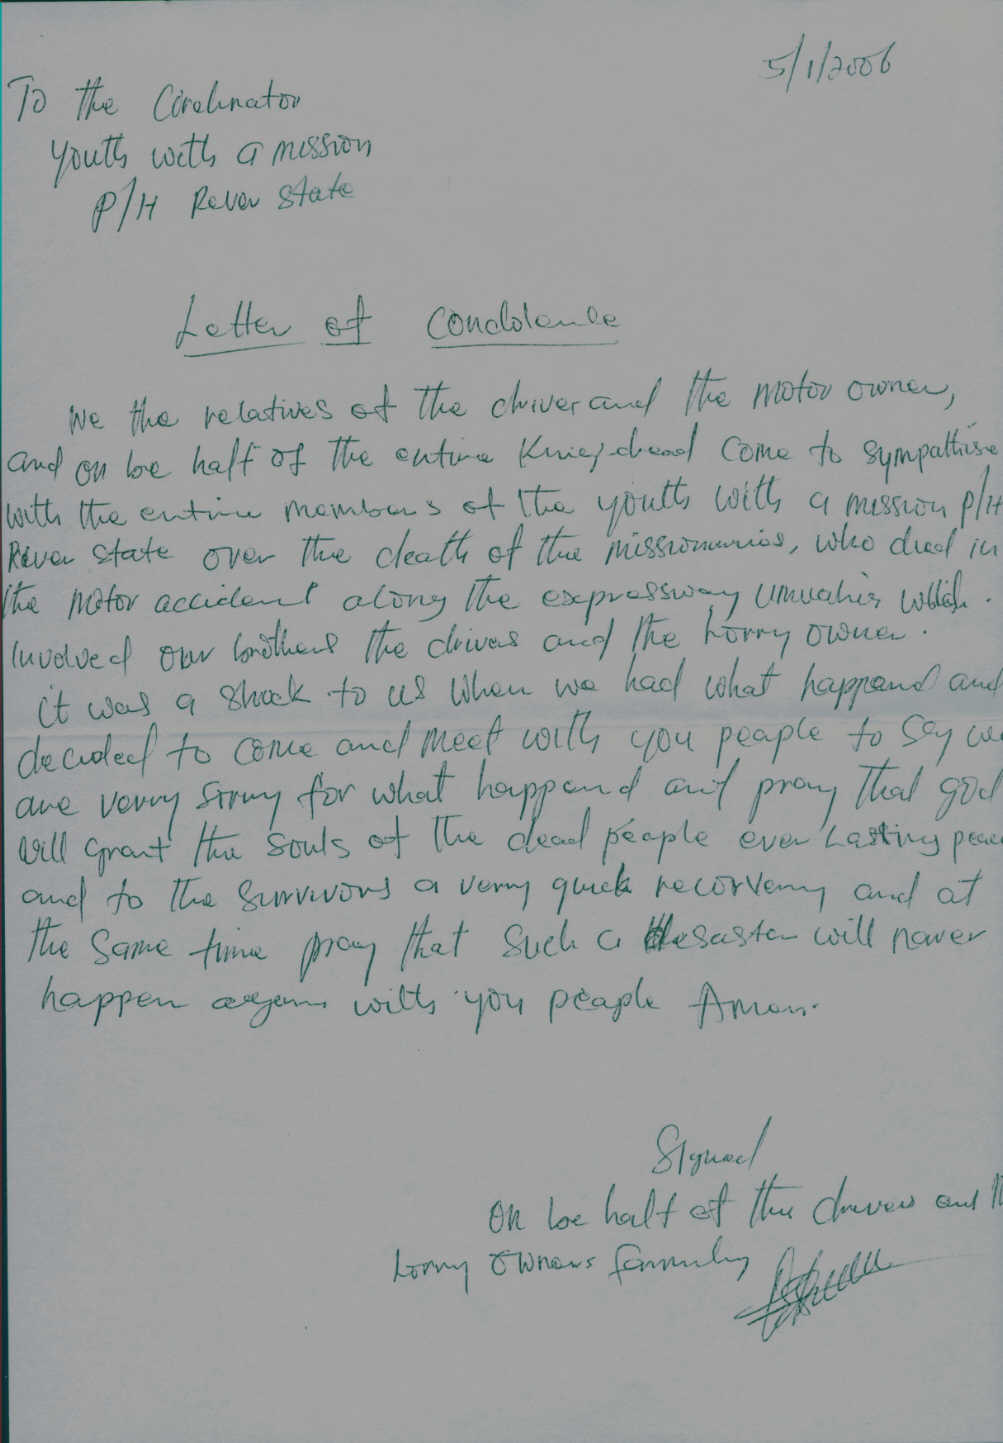 5/1/2006
To the Cordinator
Youth with a mission
P/H River state
Letter of Condolence
We the relatives of the driver and the motor owner,
and on be half of the entire come to sympathise
with the entire members of the youth with a mission P/H
River state over the death of the missionaries, who died in
the motor accident along the expressway Umuahia which
involved our brothers the drivers and the Lorry owner.
it was a shock to us when we had what happend and
decided to come and meet with you peaple to say we
are verry sorry for what happend and pray that god
will grant the souls of the dead peaple ever Lasting peace
and to the survivors a verry quick recorvery and at
the same time pray that such a desaster will never
happen again with you peaple Amen.
Signed
On be half of the drivers and
Lorry owners family